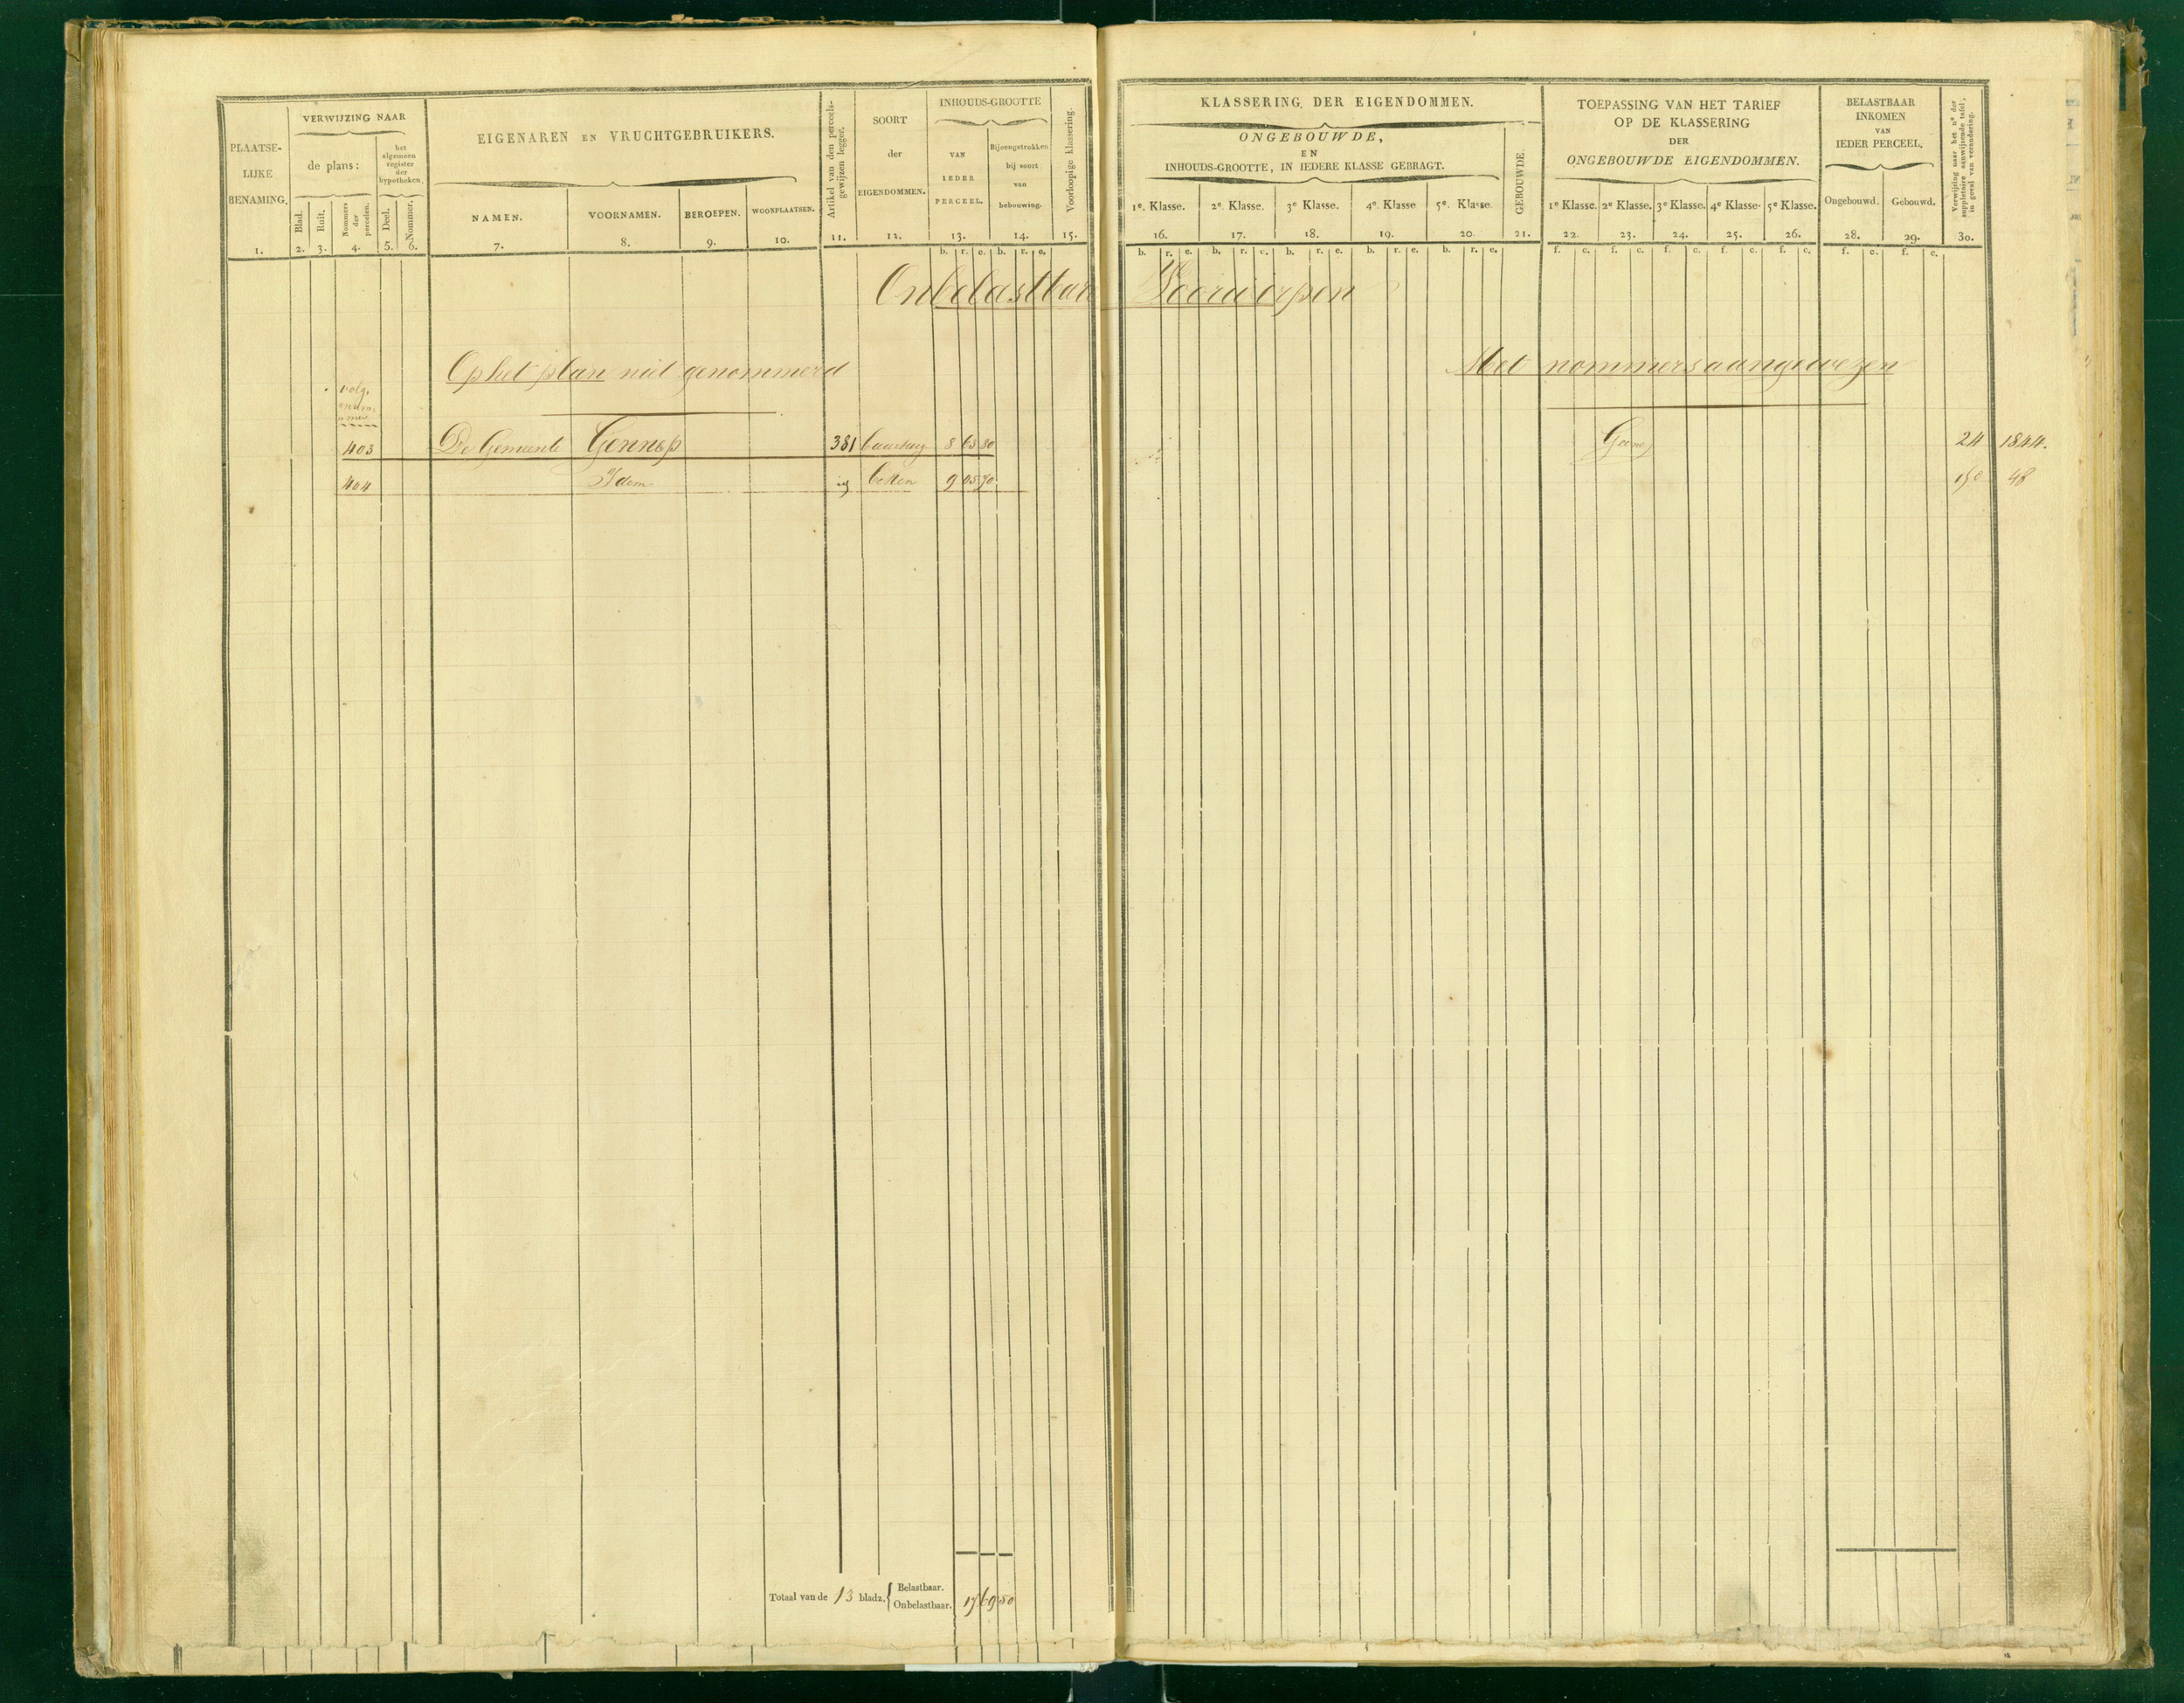 PLAATSE-
LIJKE
BENAMING.
1.
VERWIJZING NAAR
de plans:
het
algemeen
register
der
hypotheken.
Blad.
2.
Ruit.
3.
Nommers
der
perceelen.
4.
Deel.
5.
Nommer.
6.
EIGENAREN EN VRUCHTGEBRUIKERS.
NAMEN.
7.
VOORNAMEN.
8.
BEROEPEN.
9.
WOONPLAATSEN.
10.
Artikel van den perceels-
gewijzen legger.
11.
SOORT
der
EIGENDOMMEN.
12.
INHOUDS-GROOTTE
VAN
IEDER
PERCEEL.
13.
Bijeengetrokken
bij soort
van
bebouwing.
14.
Voorloopige klassering.
15.
b. r. e. b. r. e.
KLASSERING DER EIGENDOMMEN.
ONGEBOUWDE,
EN
INHOUDS-GROOTTE, IN IEDERE KLASSE GEBRAGT.
1e. Klasse. 2e. Klasse. 3e Klasse. 4e. Klasse 5e. Klasse.
16. 17. 18. 19. 20.
GEBOUWDE.
21.
b. r. e. b. r. e. b. r. e. b. r. e. b. r. e.
TOEPASSING VAN HET TARIEF
OP DE KLASSERING
DER
ONGEBOUWDE EIGENDOMMEN.
1e Klasse. 2e Klasse. 3e Klasse. 4e Klasse. 5e Klasse.
22. 23. 24. 25. 26.
f. c. f. c. f. c. f. c. f. c.
BELASTBAAR
INKOMEN
VAN
IEDER PERCEEL.
Ongebouwd. Gebouwd.
28. 29.
f. c. f. c.
Verwijzing naar het no der
suppletoire aanwijzende tafel,
in geval van verandering.
30.
Onbelastbare Voorwerpen
Op het plan niet genommerd
Met nommers aangewezen
volg.
num.
mer
403 De Gemeente Gennep 381 8 63 80 Geene 24 1844.
404 Idem beken 9 05 70 48
Totaal van de 13 bladz. { Belastbaar.
Onbelastbaar. 17 69 50